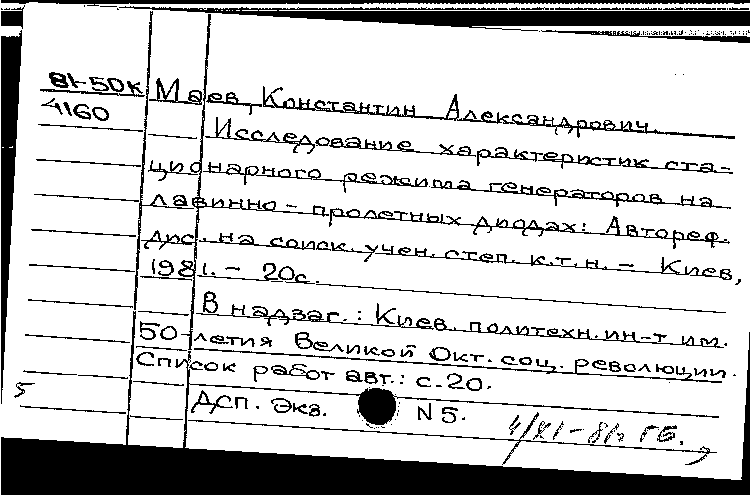 81-50К Маев, Константин Александрович.
4160
Исследование характеристик ста-
ционарного режима генераторов на
лавинно-пролетных диодах: Автореф.
дис. на соиск. учен. степ. к.т.н. - Киев,
1981. - 20с.
В надзаг.: Киев. политехн. ин-т им.
50-летия Великой Окт. соц. революции.
Список работ авт.: с.20.
5
ДСП. Экз. N 5.
4/XI-81г ГБ.